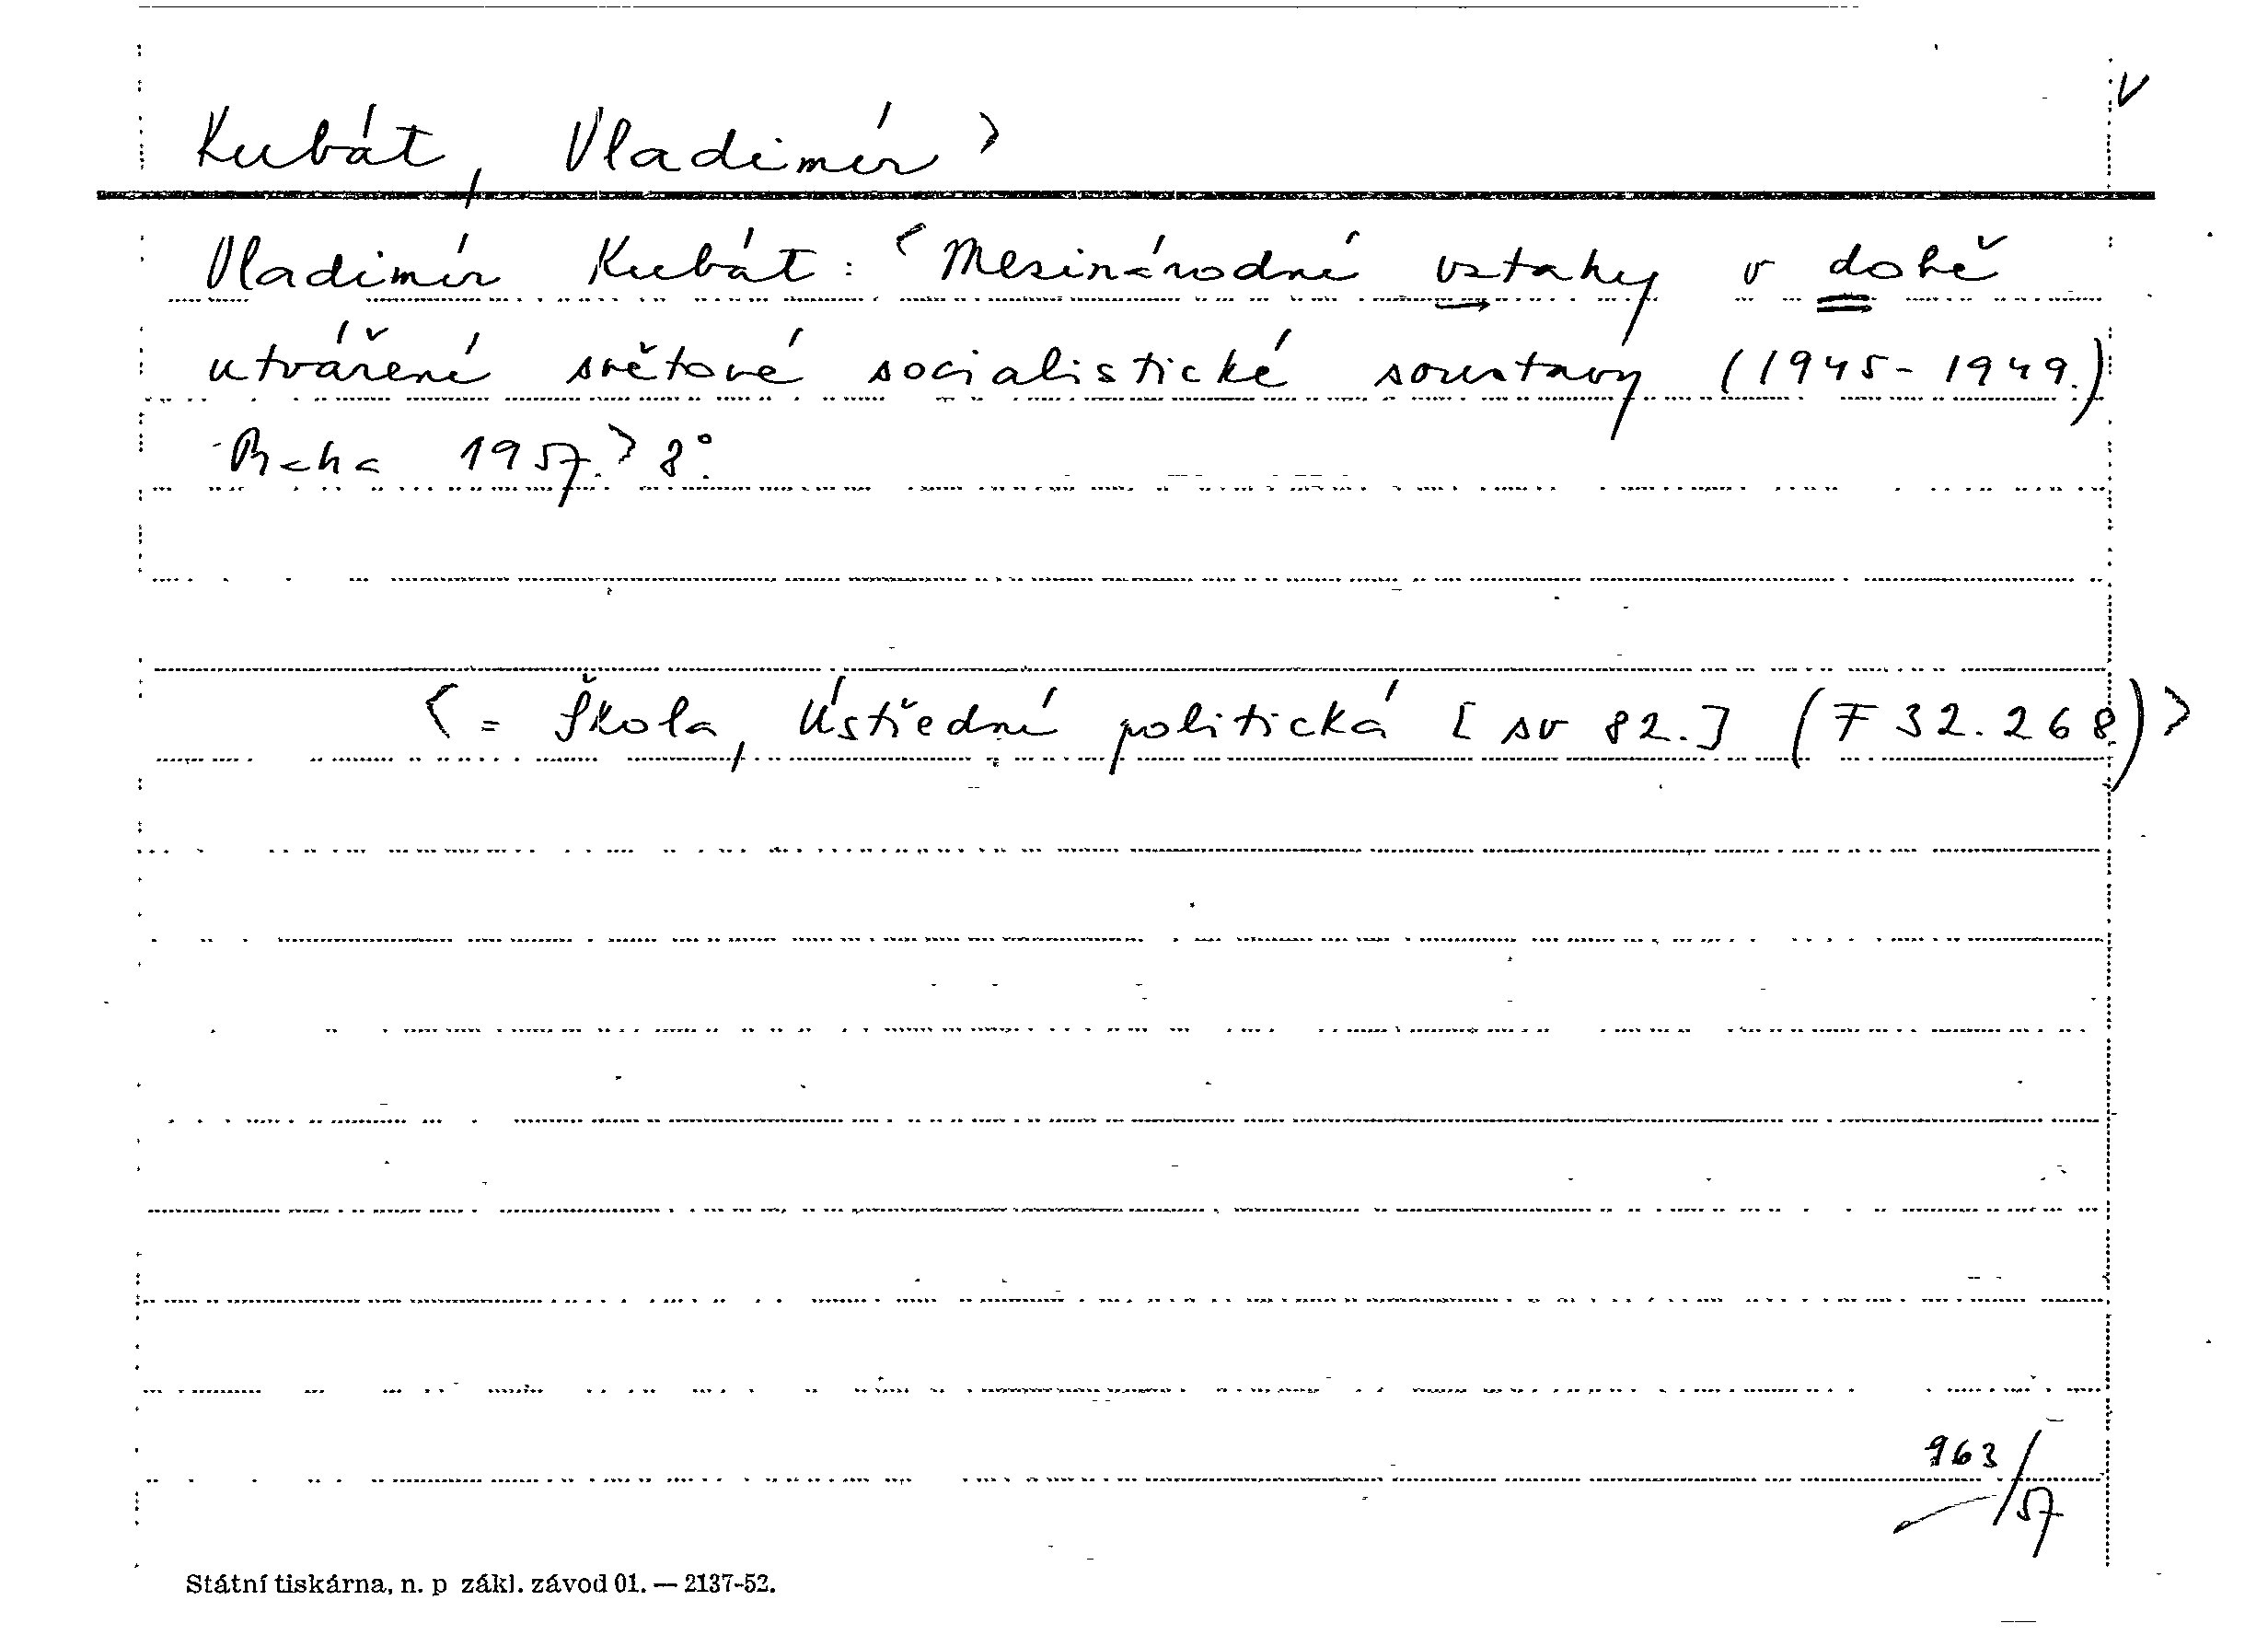 V
Kubát, Vladimír >
Vladimír Kubát: < Mezinárodní vztahy v době
utváření světové socialistické soustavy (1945-1949.)
Praha 1957. > 8°.
< = Škola, Ústřední politická [sv 82.] (F 32.268) >
963/57
Státní tiskárna, n. p zákl. závod 01. — 2137-52.